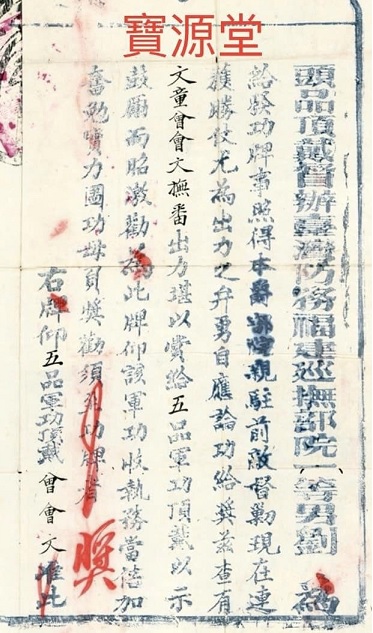 寶源堂
頭品頂戴督辦臺灣防務福建巡撫部院一等男劉 為
給發功牌事照得本爵部院親駐前敵督勦現在連
獲勝仗尤為出力之弁勇自應論功給獎茲查有
文童曾會文撫番出力堪以賞給五品軍功頂戴以示
鼓勵而昭激勸為此牌仰該軍功收執務當倍加
奮勉實力圖功毋負獎勸須至功牌者
右牌仰五品軍功頂戴曾會文准此
獎